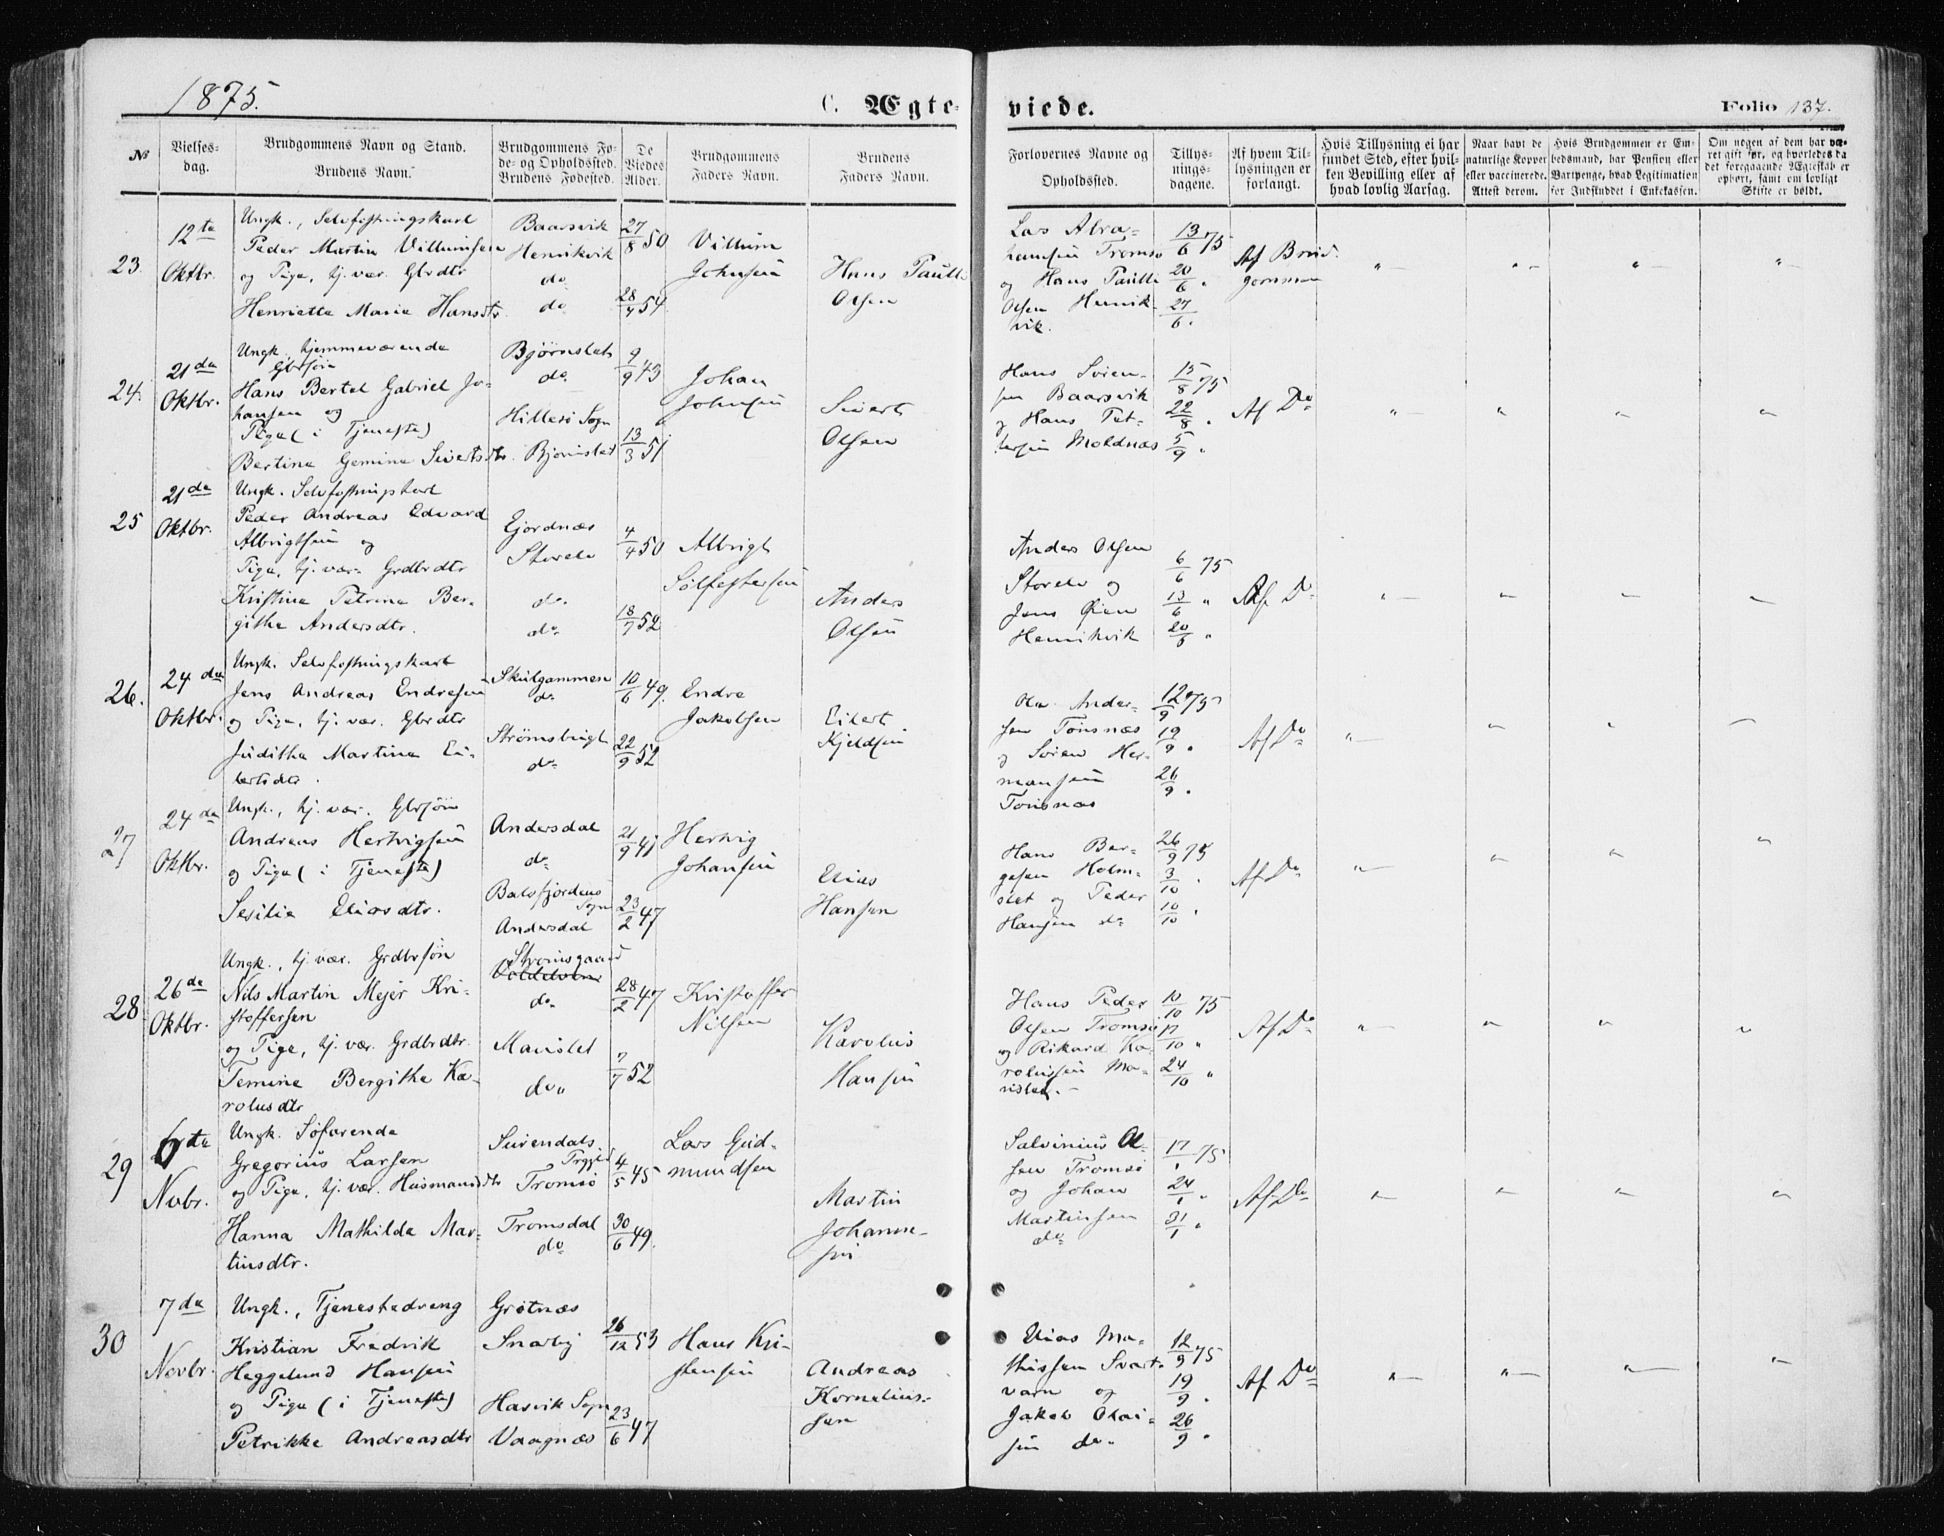 1875.
C. Ægteviede.
Folio 137.
№
Vielsesdag.
Brudgommens Navn og Stand.
Brudens Navn.
Brudgommens Føde- og Opholdssted.
Brudens Fødested.
De Viedes Alder.
Brudgommens Faders Navn.
Brudens Faders Navn.
Forlovernes Navne og Opholdssted.
Tillysningsdagene.
Af hvem Tillysningen er forlangt.
Hvis Tillysning ei har fundet Sted, efter hvilken Bevilling eller af hvad lovlig Aarsag.
Naar havt de naturlige Kopper eller vaccinerede. Attest derom.
Hvis Brudgommen er Embedsmand, har Pension eller Vartpenge, hvad Legitimation for Indskuddet i Enkekassen.
Om nogen af dem har været gift før, og hvorledes da det foregaaende Ægteskab er ophørt, samt om lovligt Skifte er holdt.
23.
12te
Oktbr.
Ungk., Selvfostringskarl
Peder Martin Villumsen
og Pige, hj. vær. Gbrdtr
Henriette Marie Hansdtr.
Baarsvik
Henrikvik
do
do
27/8 50
28/4 54
Villum
Johnsen
Hans Paulli
Olsen
Lars Abra-
hamsen Tromsø
og Hans Paulli
Olsen Henrik-
vik.
13/6 75
20/6 "
27/6 "
Af Brud-
gommen
24.
21de
Oktbr.
Ungk. hjemmeværende
Gbrsøn
Hans Bertel Gabriel Jo-
hansen og
Pige (i Tjeneste)
Bertine Gemine Sivertsdtr.
Bjørnslet
do
Hillesø Sogn
Bjørnslet
9/9 43
13/3 51
Johan
Johnsen
Sivert
Olsen
Hans Søren-
sen Baarsvik
og Hans Pet-
tersen Moldnæs
15/8 75
22/8 "
5/9 "
Af Do
25
21de
Oktbr.
Ungk. Selvfostringskarl
Peder Andreas Edvard
Albrigtsen og
Pige, hj. vær. Grdbrdtr
Kristine Petrine Ber-
githe Andersdtr.
Ejordnæs
Storelv
do
do
4/4 50
18/7 52
Albrigt
Sølfestersen
Anders
Olsen
Anders Olsen
Storelv og
Jens Øien
Henrikvik
6/6 75
13/6 "
20/6 "
Af Do
26.
24de
Oktbr.
Ungk. Selvfostringskarl
Jens Andreas Endresen
og Pige, hj. vær. Gbrdtr
Judithe Martine Ei-
lertsdtr.
Skulgammen
do
Strømsbugt
do
10/6 49.
22/9 52
Endre
Jakobsen
Eilert
Kjeldsen
Ole Ander-
sen Tønsnæs
og Søren Her-
mansen
Tønsnæs
12/9 75
19/9 "
26/9 "
Af Do
27
24de
Oktbr.
Ungk., hj. vær. Gbrsøn
Andreas Hertvigsen
og Pige (i Tjeneste)
Sesilie Eliasdtr.
Andersdal
do
Balsfjordens
Sogn
Andersdal
21/9 41
23/2 47
Hertvig
Johansen
Elias
Hansen
Hans Ber-
gesen Holm-
slet og Peder
Hansen do
26/9 75
3/10 "
10/10 "
Af Do
28
26de
Oktbr.
Ungk., hj. vær. Grdbrsøn
Nils Martin Mejer Kri-
stoffersen
og Pige, hj. vær. Grdbrdtr.
Temine Bergithe Ka-
rolusdtr
Strømsgaard
do
Marislet
do
28/2 47
7/7 52
Kristoffer
Nilsen
Karolus
Hansen
Hans Peder
Olsen Tromsø
og Rikard Ka-
rolussen Ma-
rislet.
10/10 75
17/10 "
24/10 "
Af Do
29
6te
Novbr.
Ungk. Søfarende
Gregorius Larsen
og Pige, hj. vær. Husmandsdtr
Hanna Mathilde Mar-
tinsdtr.
Surendals
Præstgj.
Tromsø
Tromsdal
do
4/5 45
30/6 49.
Lars Gud-
mundsen
Martin
Johanne-
sen
Salvinius Ol-
sen Tromsø
og Johan
Martinsen
do
17/1 75
24/1 "
31/1 "
Af Do
30
7de
Novbr.
Ungk., Tjenestedreng
Kristian Fredrik
Heggelund Hansen
og Pige (i Tjeneste)
Petrikke Andreasdtr
Grøtnæs
Snarby
Hasvik Sogn
Vaagnæs
26/12 53
23/6 47
Hans Kri-
stensen
Andreas
Kornelius-
sen
Elias Ma-
thissen Svart-
varn og
Jakob Olai-
sen do
12/9 75
19/9 "
26/9 "
Af Do